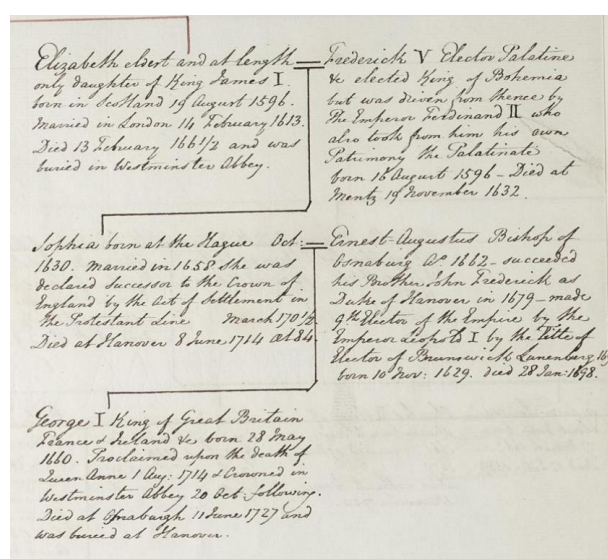 Elizabeth eldest and at length
only daughter of King James I.
born in Scotland 19 August 1596.
Married in London 14 February 1613.
Died 13 February 166½ and was
buried in Westminster Abbey.
Frederick V Elector Palatine
& elected King of Bohemia
but was driven from thence by
The Emperor Ferdinand II who
also took from him his own
Patrimony the Palatinate
born 16 August 1596 – Died at
Mentz 19 November 1632.
Sophia born at the Hague Oct:
1630. Married in 1658 She was
declared successor to the Crown of
England by the Act of Settlement in
the Protestant Line March 170½
Died at Hanover 8 June 1714 at 84.
Ernest-Augustus Bishop of
Osnaburg Ao. 1662 – succeeded
his Brother John Frederick as
Duke of Hanover in 1679 – made
9th Elector of the Empire by the
Emperor Leopold I by the Title of
Elector of Brunswick Lunenburg
born 10 Nov: 1629. died 28 Jan: 1698.
George I King of Great Britain
France & Ireland &c born 28 May
1660. Proclaimed upon the death of
Queen Anne 1 Aug: 1714 & Crowned in
Westminster Abbey 20 Oct: following.
Died at Osnaburgh 11 June 1727 and
was buried at Hanover.